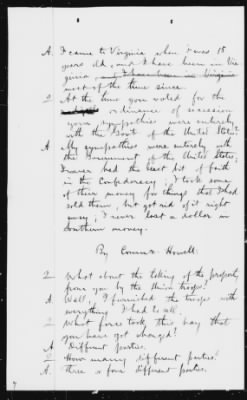 A. I came to Virginia when I was 18
years old, and I have been in Vir
ginia, and I have been in Virginia
most of the time since.
Q At the time you voted for the
ordinance of secession
your sympathies were entirely
with the Govt of the United States?
A. My sympathies were entirely with
the Government of the United States,
I never had the least bit of faith
in the Confederacy; I took some
of their money for things that I had
sold them, but got rid of it right
away; I never lost a dollar in
Southern money.
By Commr. Howell:
Q What about the taking of the property
from you by the Union troops?
A Well, I furnished the troops with
everything I had to sell.
Q What force took this hay that
you have got charged?
A Different parties.
Q How many different parties?
A. Three or four different parties.